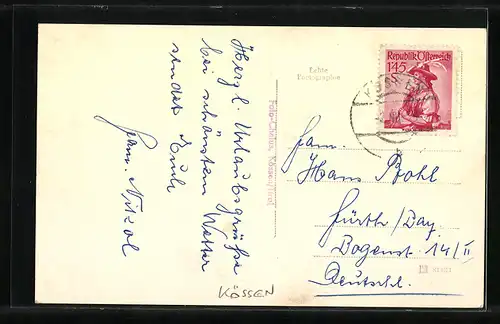 Herzl. Urlaubsgrüße
bei schönstem Wetter
sendet Euch
Fam. Nitzol
Echte
Photographie
Republik Österreich
145
Fam.
Hans Pohl
Fürth / Bay.
Bogenst. 14/II
Deutschl.
KÖSSEN